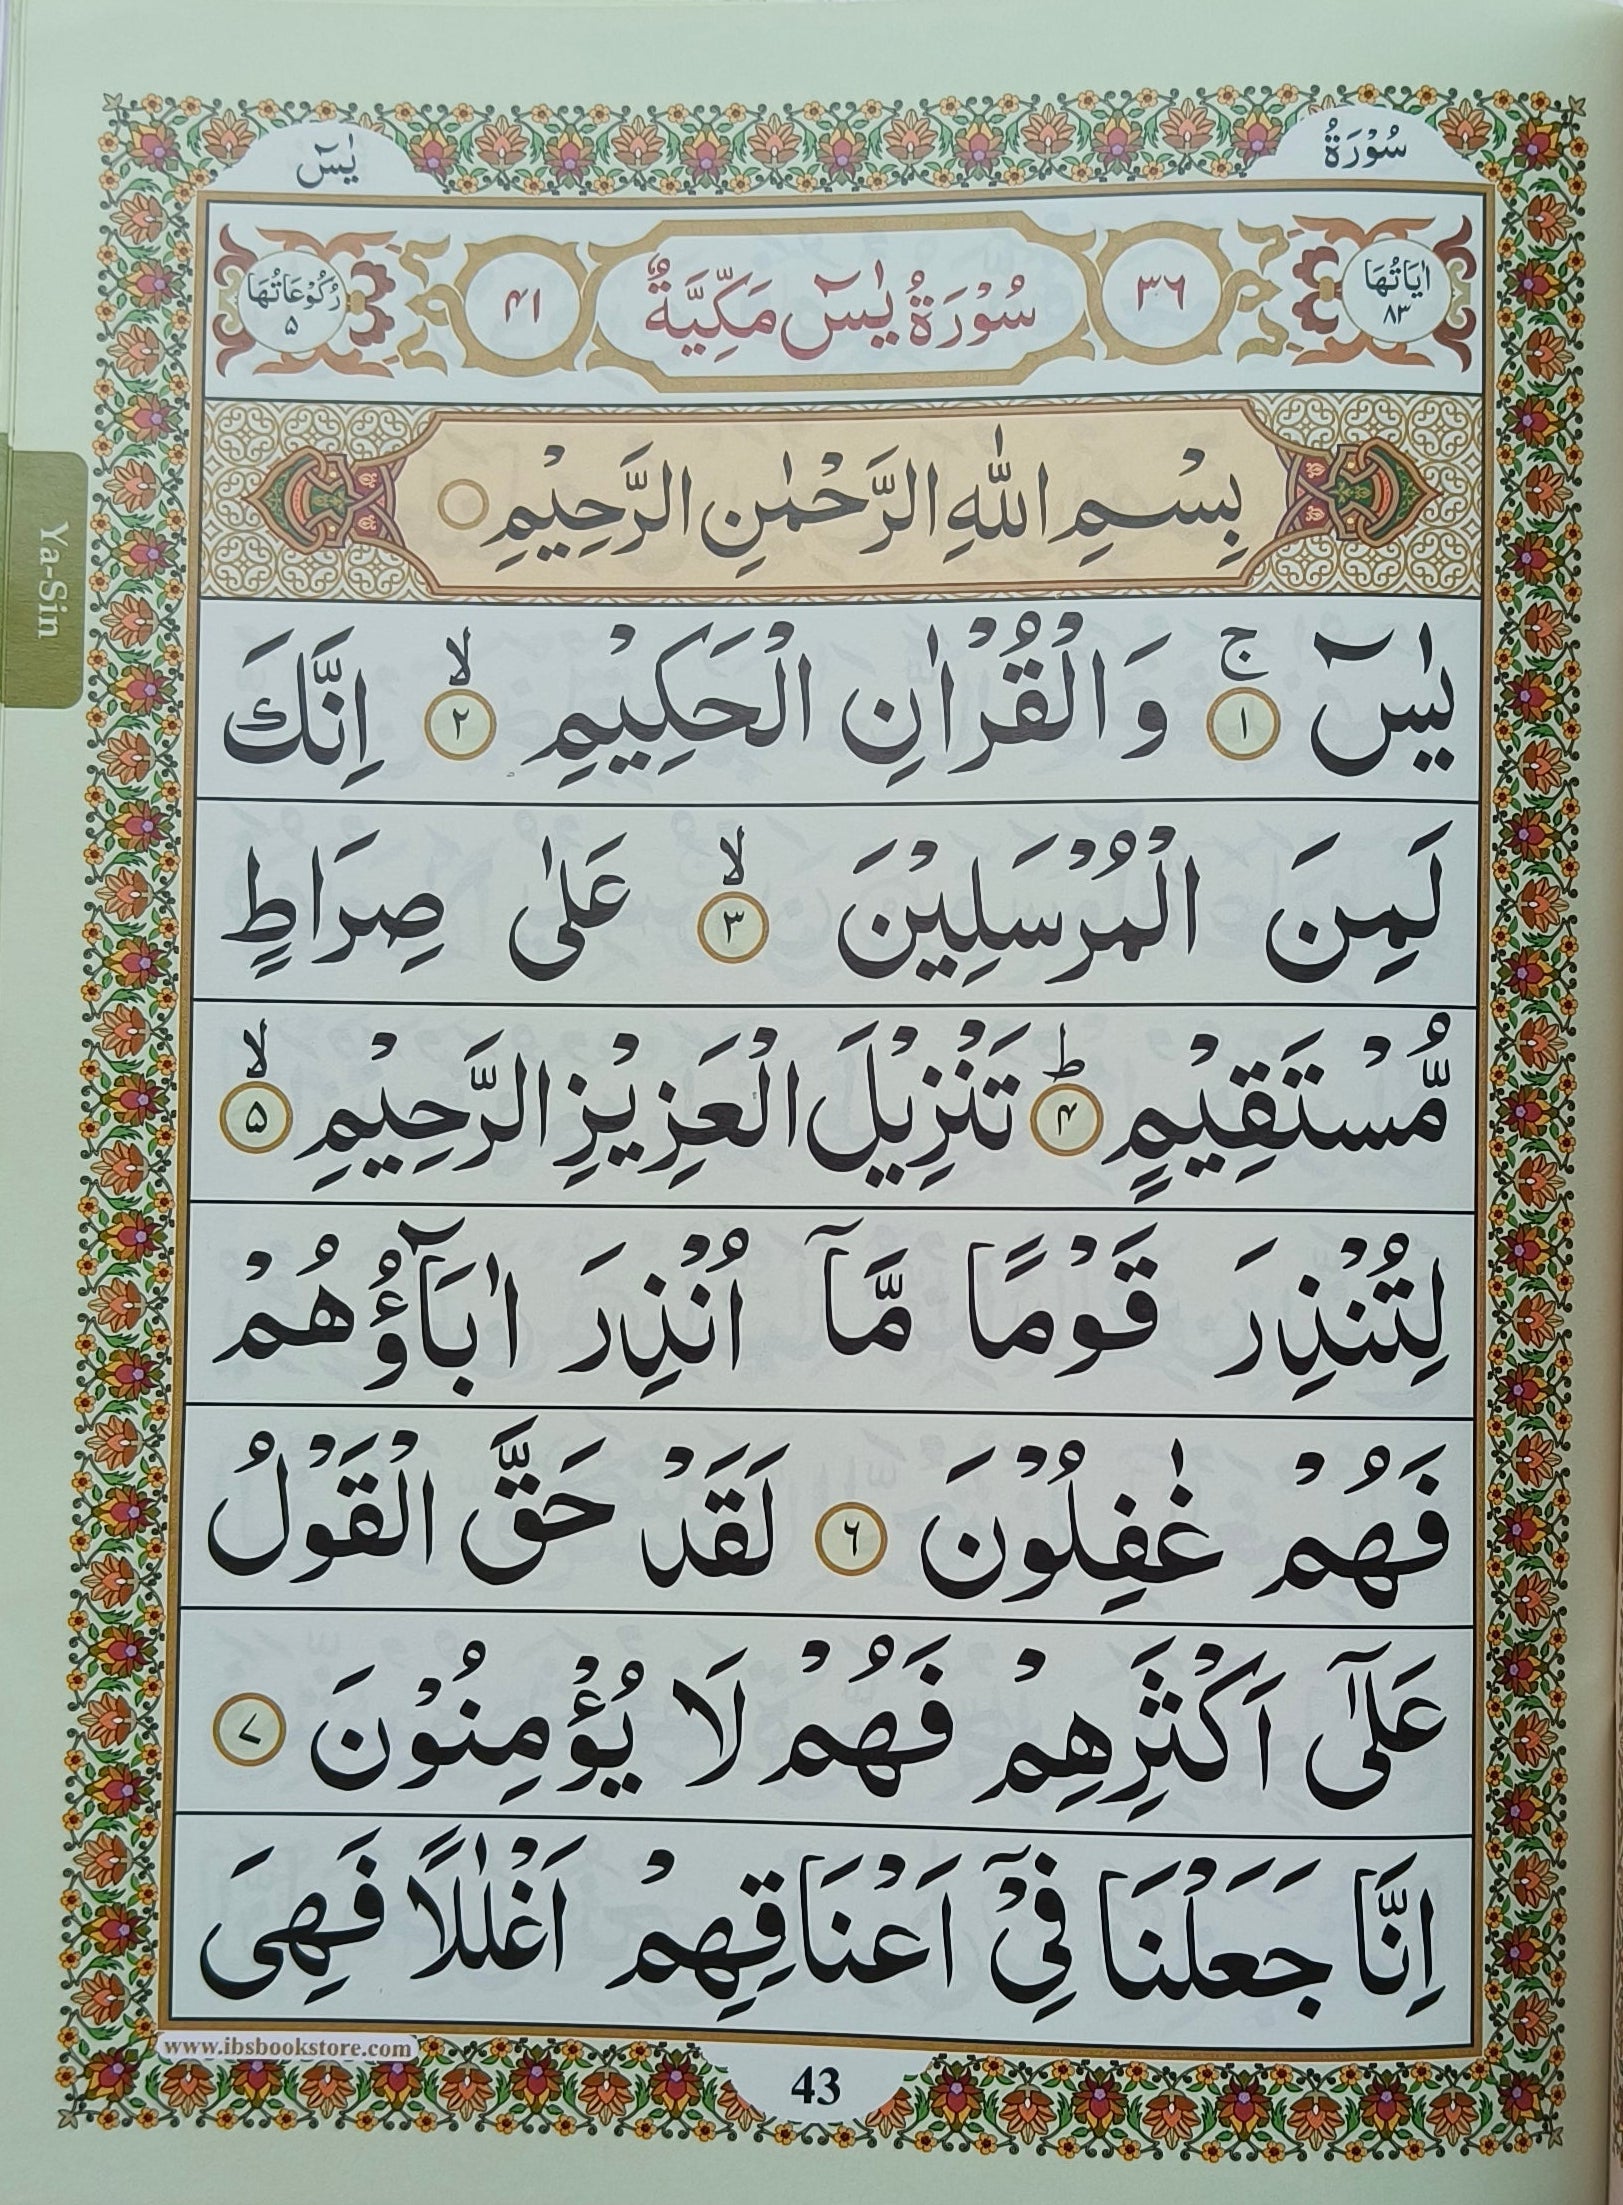 سُوْرَةُ
يٰسٓ
اٰيَاتُهَا
٨٣
٣٦
سُوْرَةُ يٰسٓ مَكِّيَّةٌ
٤١
رُكُوْعَاتُهَا
٥
بِسْمِ اللّٰهِ الرَّحْمٰنِ الرَّحِيْمِ
يٰسٓ ۚ ۝١ وَالْقُرْاٰنِ الْحَكِيْمِ ۙ ۝٢ اِنَّكَ
لَمِنَ الْمُرْسَلِيْنَ ۙ ۝٣ عَلٰى صِرَاطٍ
مُّسْتَقِيْمٍ ؕ ۝٤ تَنْزِيْلَ الْعَزِيْزِ الرَّحِيْمِ ۙ ۝٥
لِتُنْذِرَ قَوْمًا مَّاۤ اُنْذِرَ اٰبَآؤُهُمْ
فَهُمْ غٰفِلُوْنَ ۝٦ لَقَدْ حَقَّ الْقَوْلُ
عَلٰۤى اَكْثَرِهِمْ فَهُمْ لَا يُؤْمِنُوْنَ ۝٧
اِنَّا جَعَلْنَا فِيْۤ اَعْنَاقِهِمْ اَغْلٰلًا فَهِىَ
Ya-Sin
www.ibsbookstore.com
43